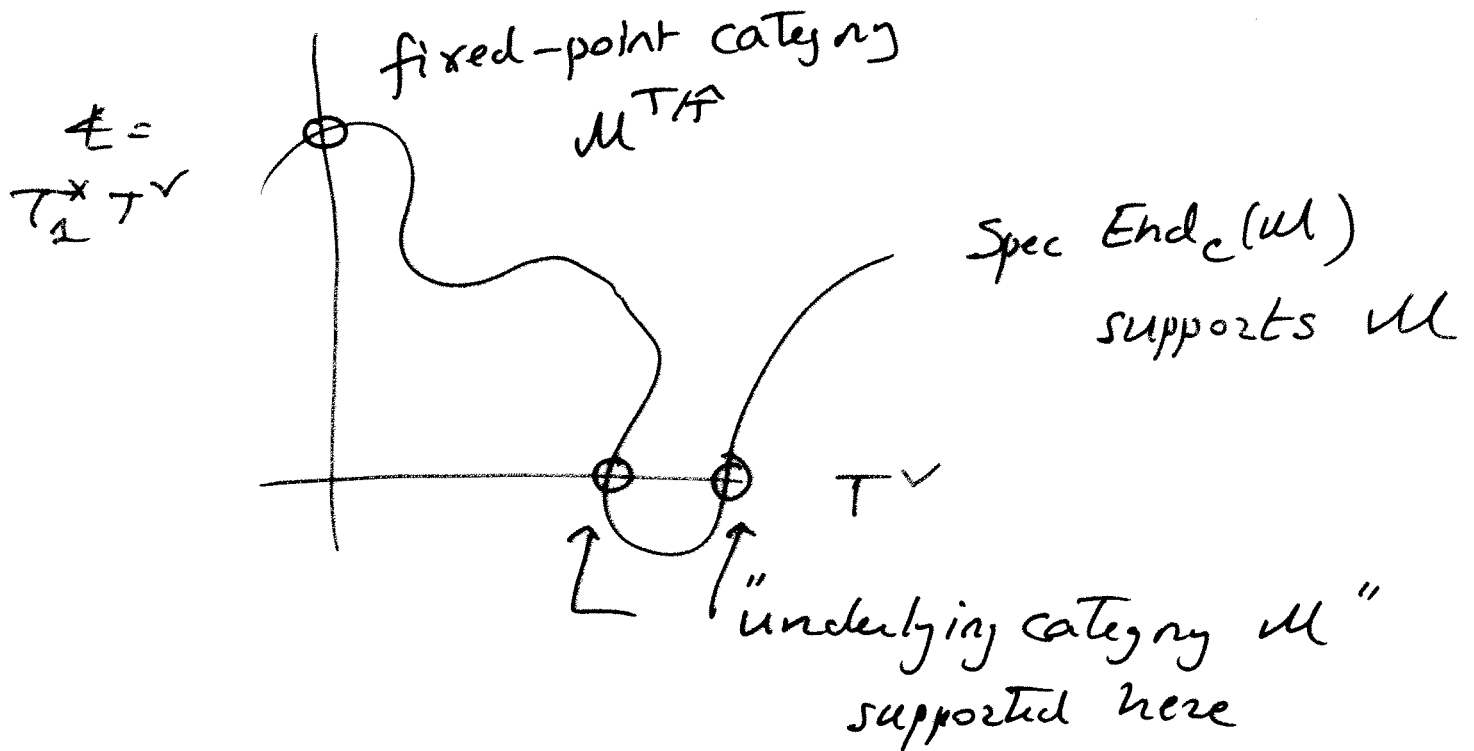 fixed-point category
𝓜^{T/T̂}
𝔱 =
T_1^* T^∨
Spec End_c(𝓜)
supports 𝓜
T^∨
"underlying category 𝓜"
supported here